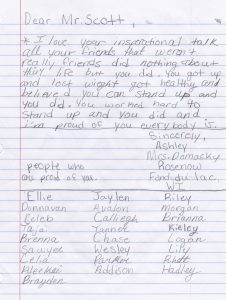 Dear Mr. Scott,
* I love your inspirational talk
all your friends that weren't
really friends did nothing about
thir life but you did. You got up
and lost wight got healthy and
believed you can stand up and
you did. You worked hard to
stand up and you did and
i'm proud of you everybody is.
Sincerely,
Ashley
Mrs. Damasky
people who Rosenow
are proud of you. Fond du lac,
WI
Ellie Jaylen Riley
Donnavan Avalon Morgan
Kaleb Calliegh Brianna
Taja Yannet Kieley
Brenna Chase Logan
Sawyer Wesley Lily
Celia Parker Rhett
Addison Hadley
Brayden